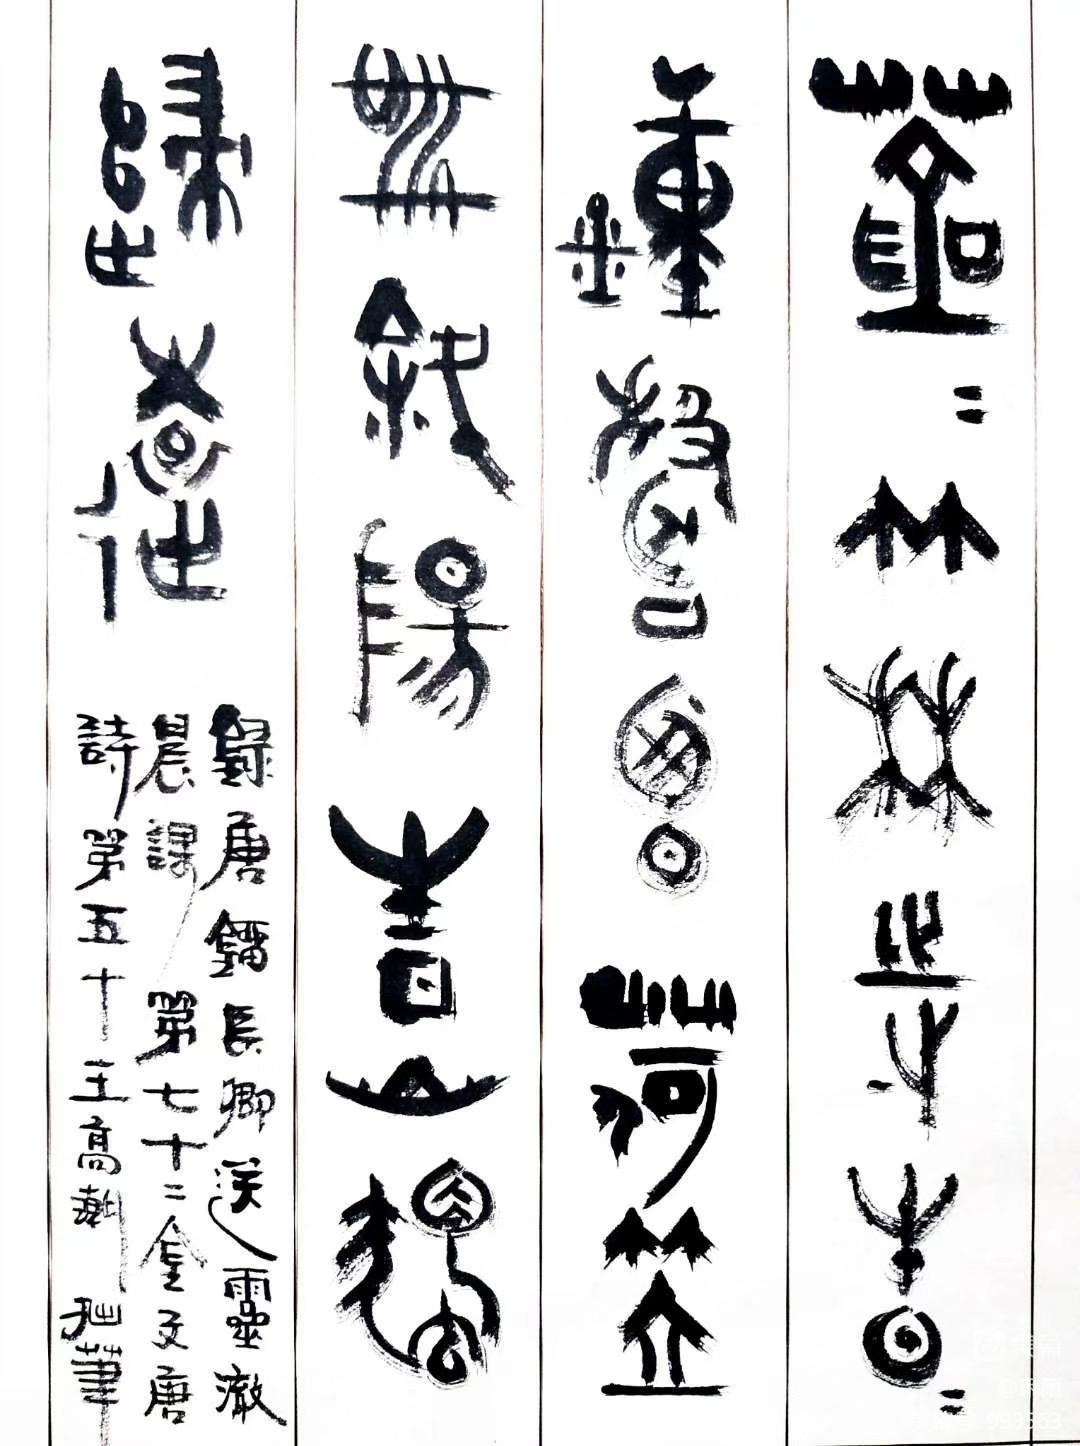 蒼〻竹林寺杳〻
鐘聲晚荷笠
帶斜陽青山獨
歸遠
錄唐劉長卿送靈澈
晨課第七十二金文唐
詩第五十王高潮拙筆
993563